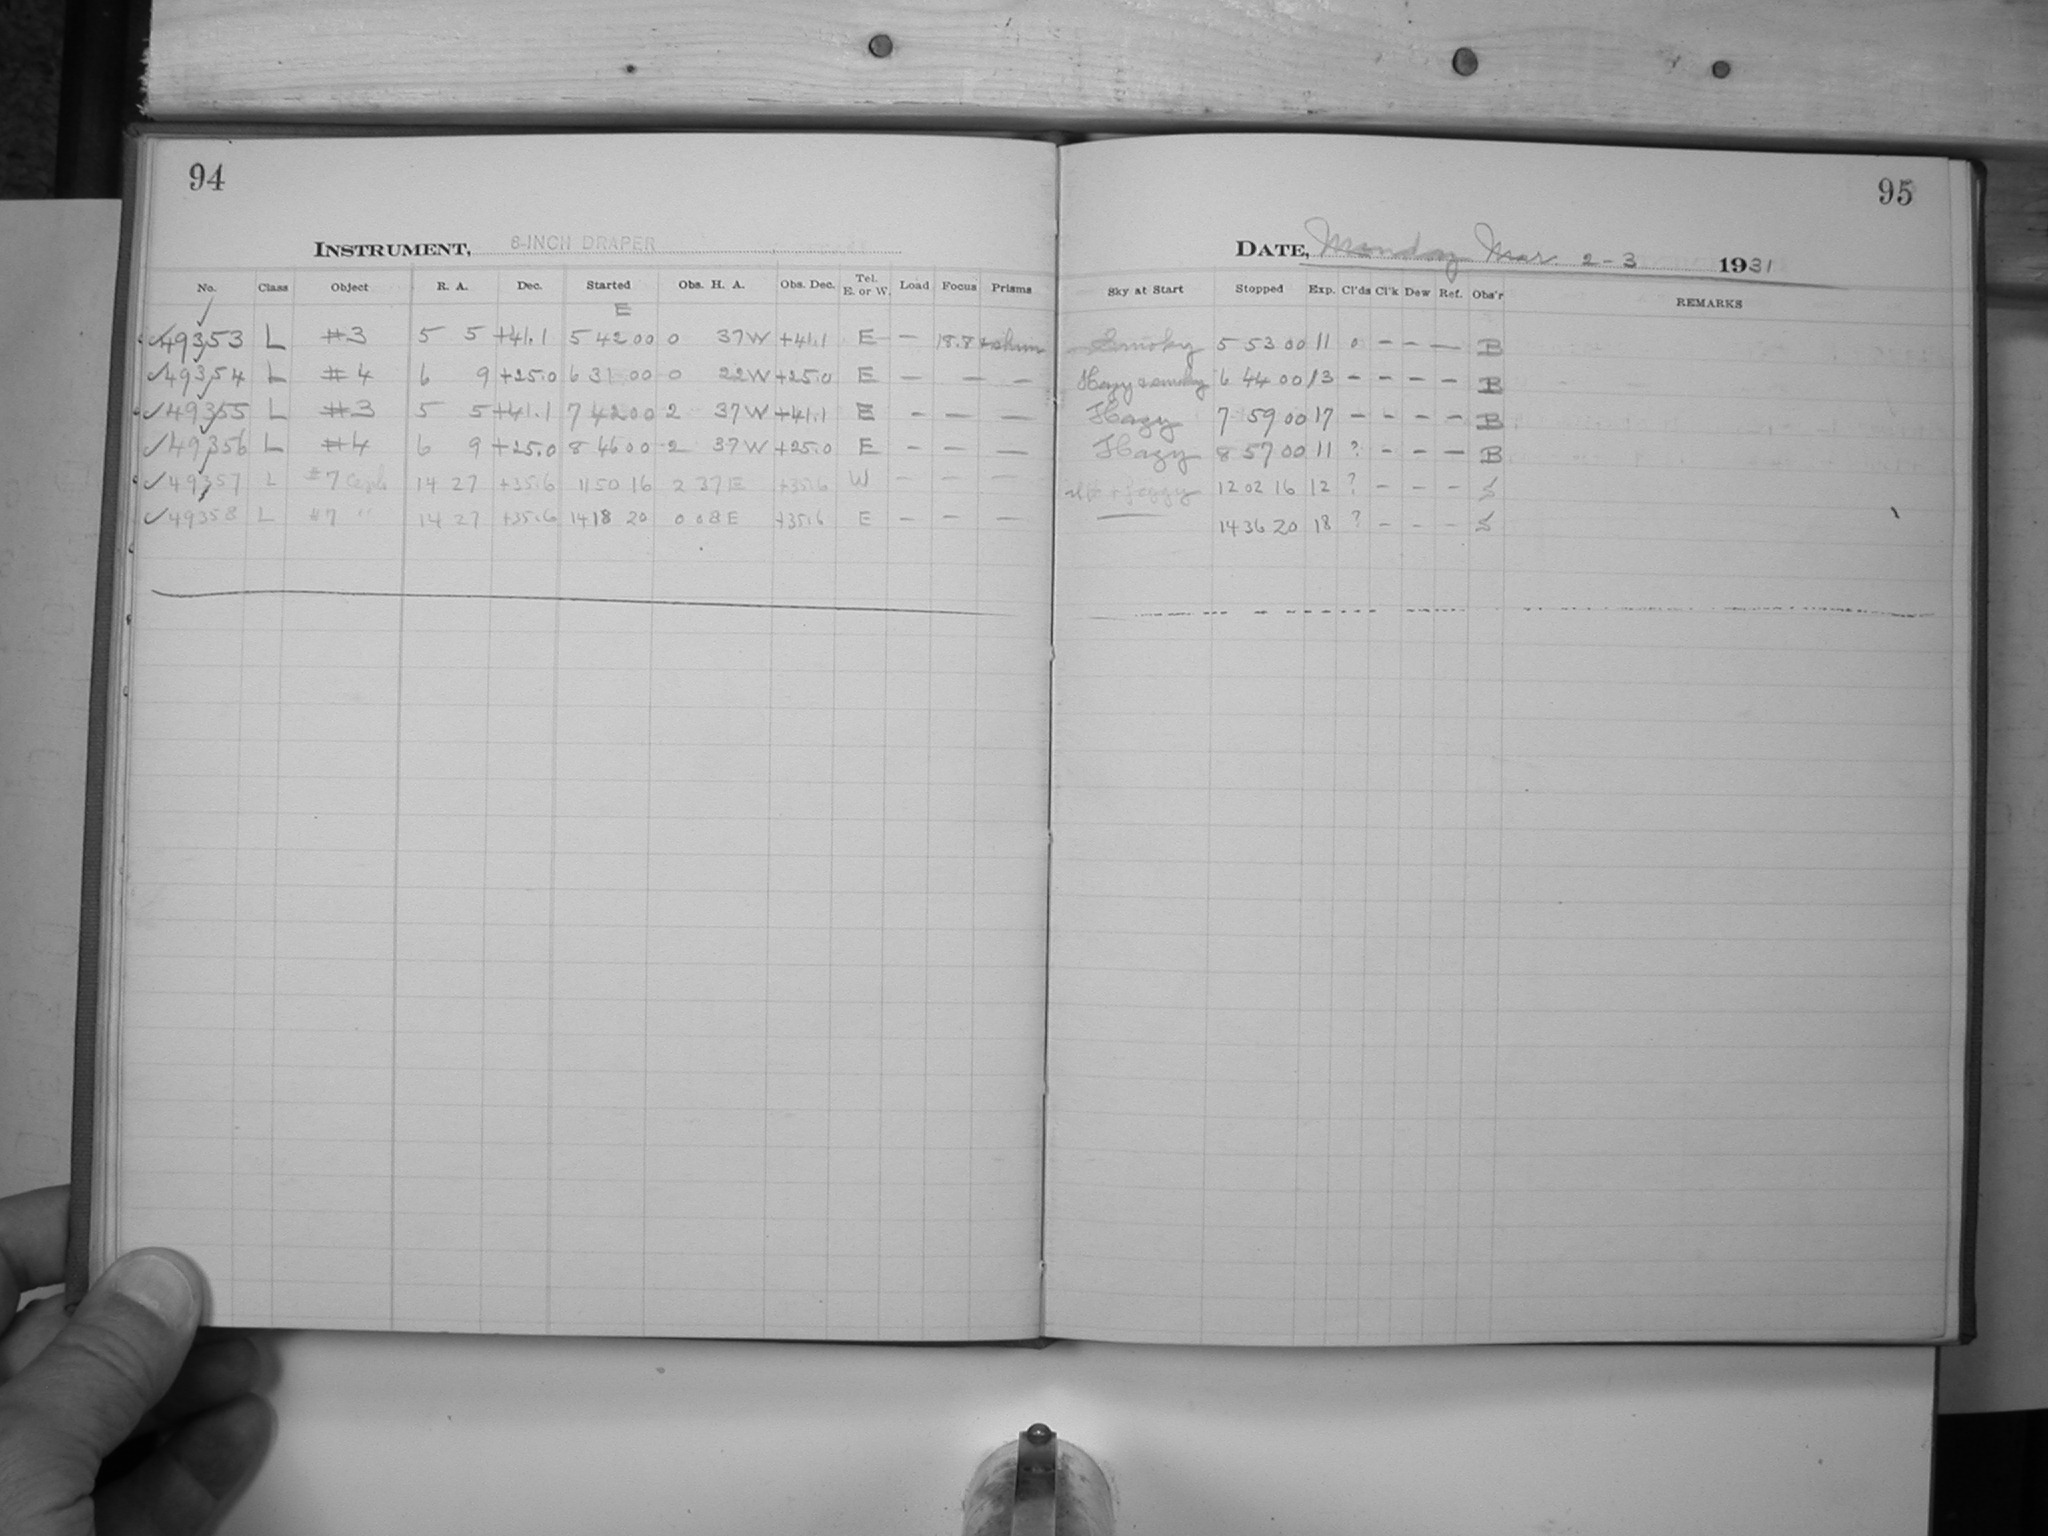 94
INSTRUMENT, 8-INCH DRAPER
No. Class Object R. A. Dec. Started Obs. H. A. Obs. Dec. Tel. E. or W. Load Focus Prisms
E
✓49353 L #3 5 5 +41.1 5 42 00 0 37W +41.1 E — 18.8
✓49354 L #4 6 9 +25.0 6 31 00 0 22W +25.0 E — — —
✓49355 L #3 5 5 +41.1 7 42 00 2 37W +41.1 E — — —
✓49356 L #4 6 9 +25.0 8 46 00 2 37W +25.0 E — — —
✓49357 L #7 Ceph 14 27 +35.6 11 50 16 2 37 E +35.6 W — — —
✓49358 L #7 " 14 27 +35.6 14 18 20 0 08 E +35.6 E — — —
95
DATE, Monday Mar. 2-3 1931
Sky at Start Stopped Exp. Cl'ds Cl'k Dew Ref. Obs'r REMARKS
Smoky 5 53 00 11 0 — — — B
Hazy & smoky 6 44 00 13 — — — — B
Hazy 7 59 00 17 — — — — B
Hazy 8 57 00 11 ? — — — B
+ foggy 12 02 16 12 ? — — — S
14 36 20 18 ? — — — S